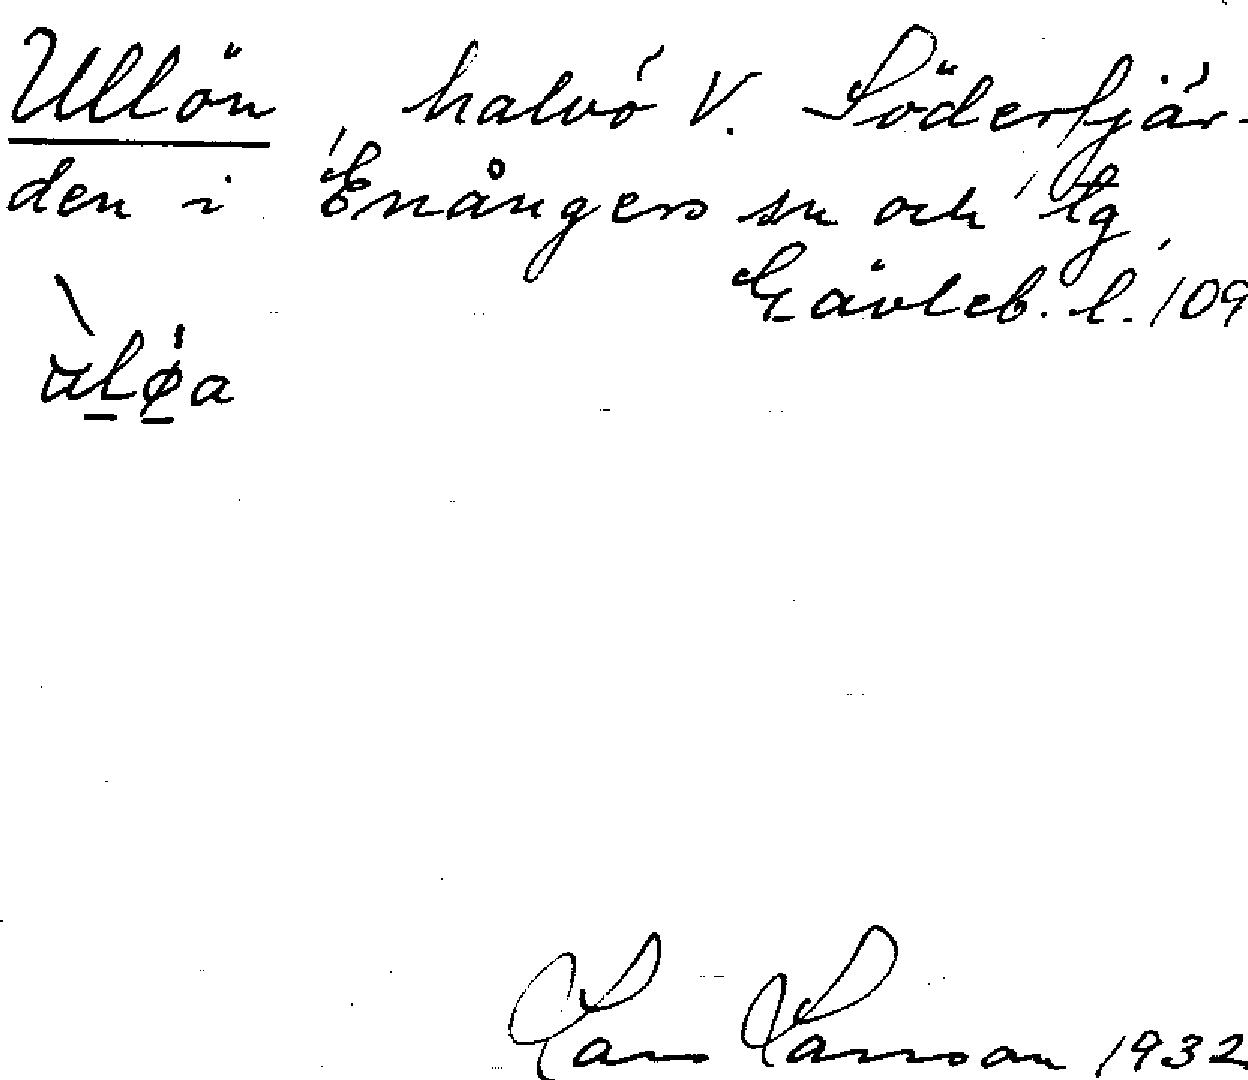 Ullön, halvö V. Söderfjär-
den i Enångers sn och tg
Gävleb. l. 109
Lars Larsson 1932